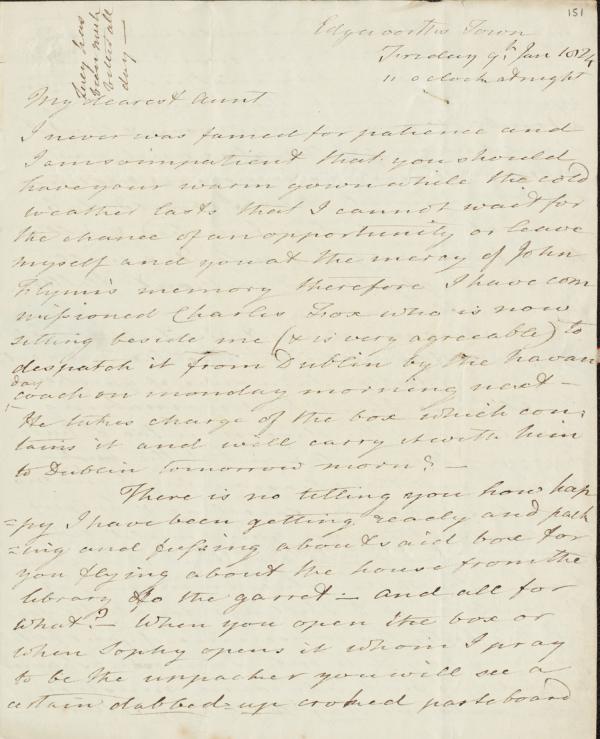 151
They have
been much
better all
day —
Edgeworths Town
Friday 9th Jan 1824
11 o clock at night
My dearest Aunt
I never was famed for patience and
I am so impatient that you should
have your warm gown while the cold
weather lasts that I cannot wait for
the chance of an opportunity or leave
myself and you at the mercy of John
Flynn's memory therefore I have com
missioned Charles Fox who is now
sitting beside me (& is very agreeable) to
despatch it from Dublin by the Navan
day
coach on monday morning next —
He takes charge of the box which con,
tains it and will carry it with him
to Dublin tomorrow morng —
There is no telling you how hap
=py I have been getting ready and pack
=ing and fussing about said box for
you flying about the house from the
library to the garret — and all for
what? — When you open the box or
when Sophy opens it whom I pray
to be the unpacker you will see a
certain dabbed-up crooked pasteboard